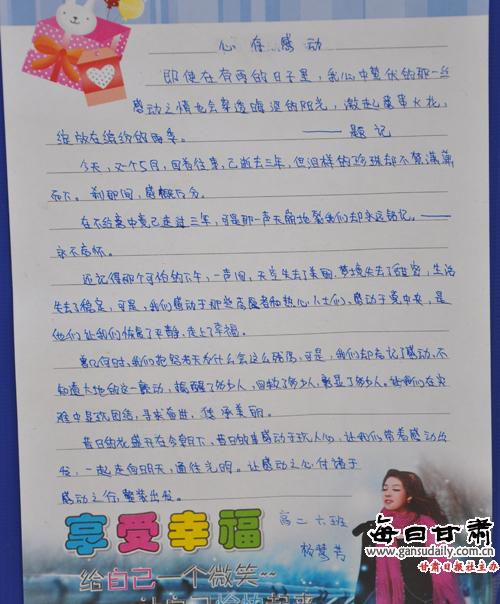 心存感动
即使在有雨的日子里,我心中蛰伏的那一丝
感动之情也会穿透晦涩的阳光,激起星星火花,
绽放在缤纷的雨季。 ——题记
今天,又个5月,回看往事,已逝去三年,但泪样的珍珠却不禁潸潸
而下。刹那间,感概万分。
在不经意中竟已走过三年,可是那一声天崩地裂我们却永远铭记。——
永不忘怀。
还记得那个可怕的下午,一声闷,天空失去了美丽,梦境失去了甜密,生活
失去了稳定,可是,我们感动于那些高尚者和热心人士们,感动于党中央,是
他们让我们恢复了平静,走上了幸福。
曾几何时,我们抱怨老天为什么会这么残忍,可是,我们却忘记了感动,不
知道大地的这一颤动,提醒了多少人,回报了多少人,彰显了多少人。让我们在灾
难中显现团结,寻求奋进,传承美丽。
昔日的花盛开在今朝下,昔日的事感动于现人心,让我们带着感动出
发,一起走向明天,通往光明。让感动之心付诸于
感动之行,整装出发。
高二六班
杨慧芳
享受幸福
给自己一个微笑~~
让自己愉快起来
每日甘肃
www.gansudaily.com.cn
甘肃日报社主办